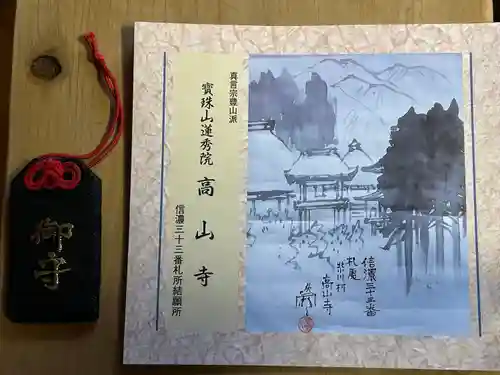 御守
真言宗豊山派
寳珠山蓮秀院 高山寺
信濃三十三番札所結願所
信濃三十三番
札処
小川村
高山寺